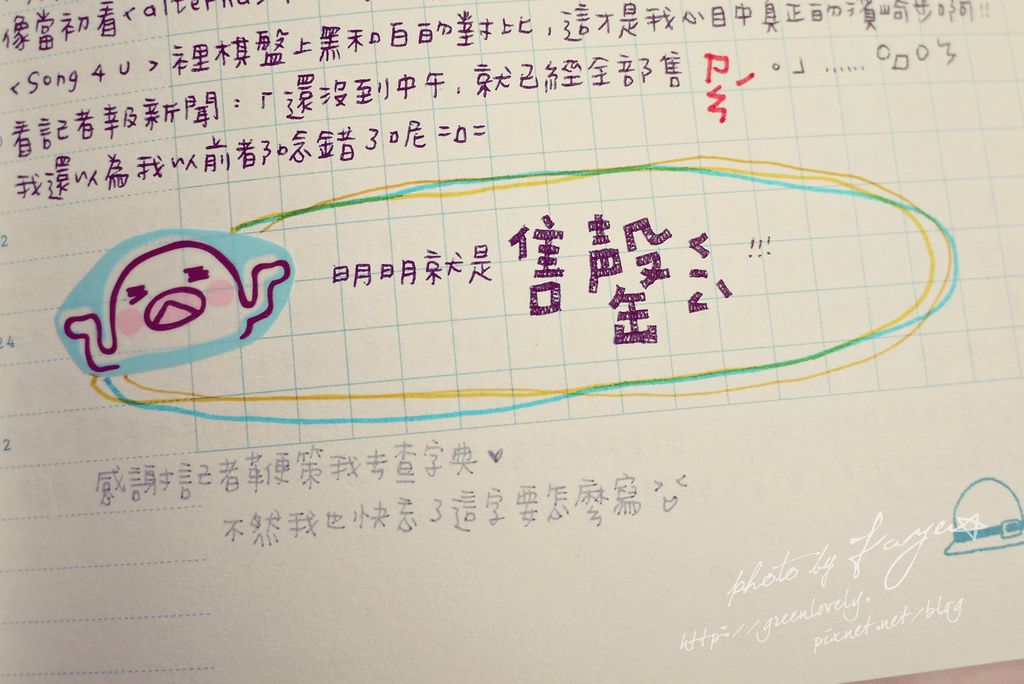 像當初看<alterna
<Song 4 U> 裡棋盤上黑和白的對比,這才是我心目中真正的濱崎步啊!!
看記者報新聞:「還沒到中午,就已經全部售 。」...... O口O
我還以為我以前都唸錯了呢 =口=
明明就是 售罄 !!!
感謝記者鞭策我去查字典♥
不然我也快忘了這字要怎麼寫
2
24
2
photo by Faye☆
http://greenlovely.
pixnet.net/blog